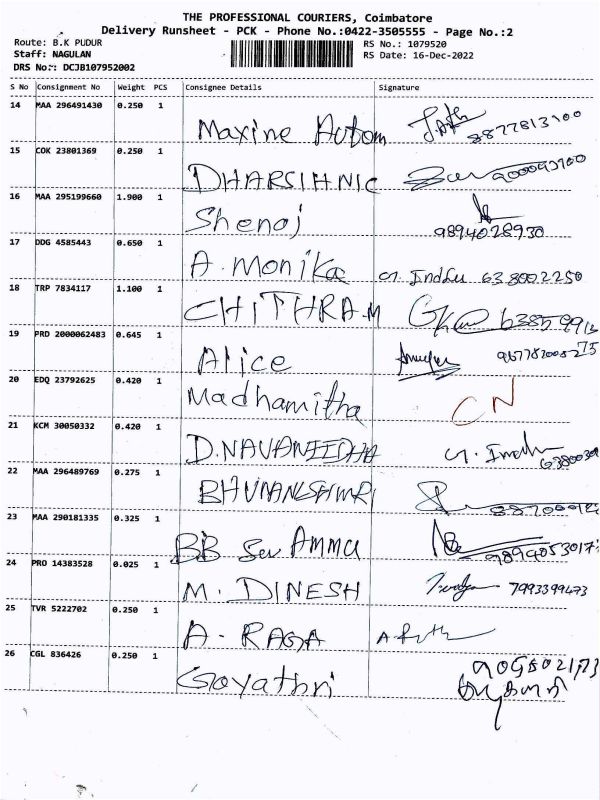 THE PROFESSIONAL COURIERS, Coimbatore
Delivery Runsheet - PCK - Phone No.:0422-3505555 - Page No.:2
Route: B.K PUDUR RS No.: 1079520
Staff: NAGULAN RS Date: 16-Dec-2022
DRS No.: DCJB107952002
S No Consignment No Weight PCS Consignee Details Signature
14 MAA 296491430 0.250 1
Maxine 8877813100
15 COK 23801369 0.250 1
DHARSIHNIC
16 MAA 295199660 1.900 1
Shenoj 9894028930
17 DDG 4585443 0.650 1
A. Monika 638002250
18 TRP 7834117 1.100 1
CHITHRAM
19 PRD 2000062483 0.645 1
Alice
20 EDQ 23792625 0.420 1
Madhamitha CN
21 KCM 30050332 0.420 1
D.NAVANEEDHA
22 MAA 296489769 0.275 1
23 MAA 290181335 0.325 1
BB AMMU
24 PRO 14383528 0.025 1
M. DINESH 7993399473
25 TVR 5222702 0.250 1
A - RAGA
26 CGL 836426 0.250 1
Goyathri